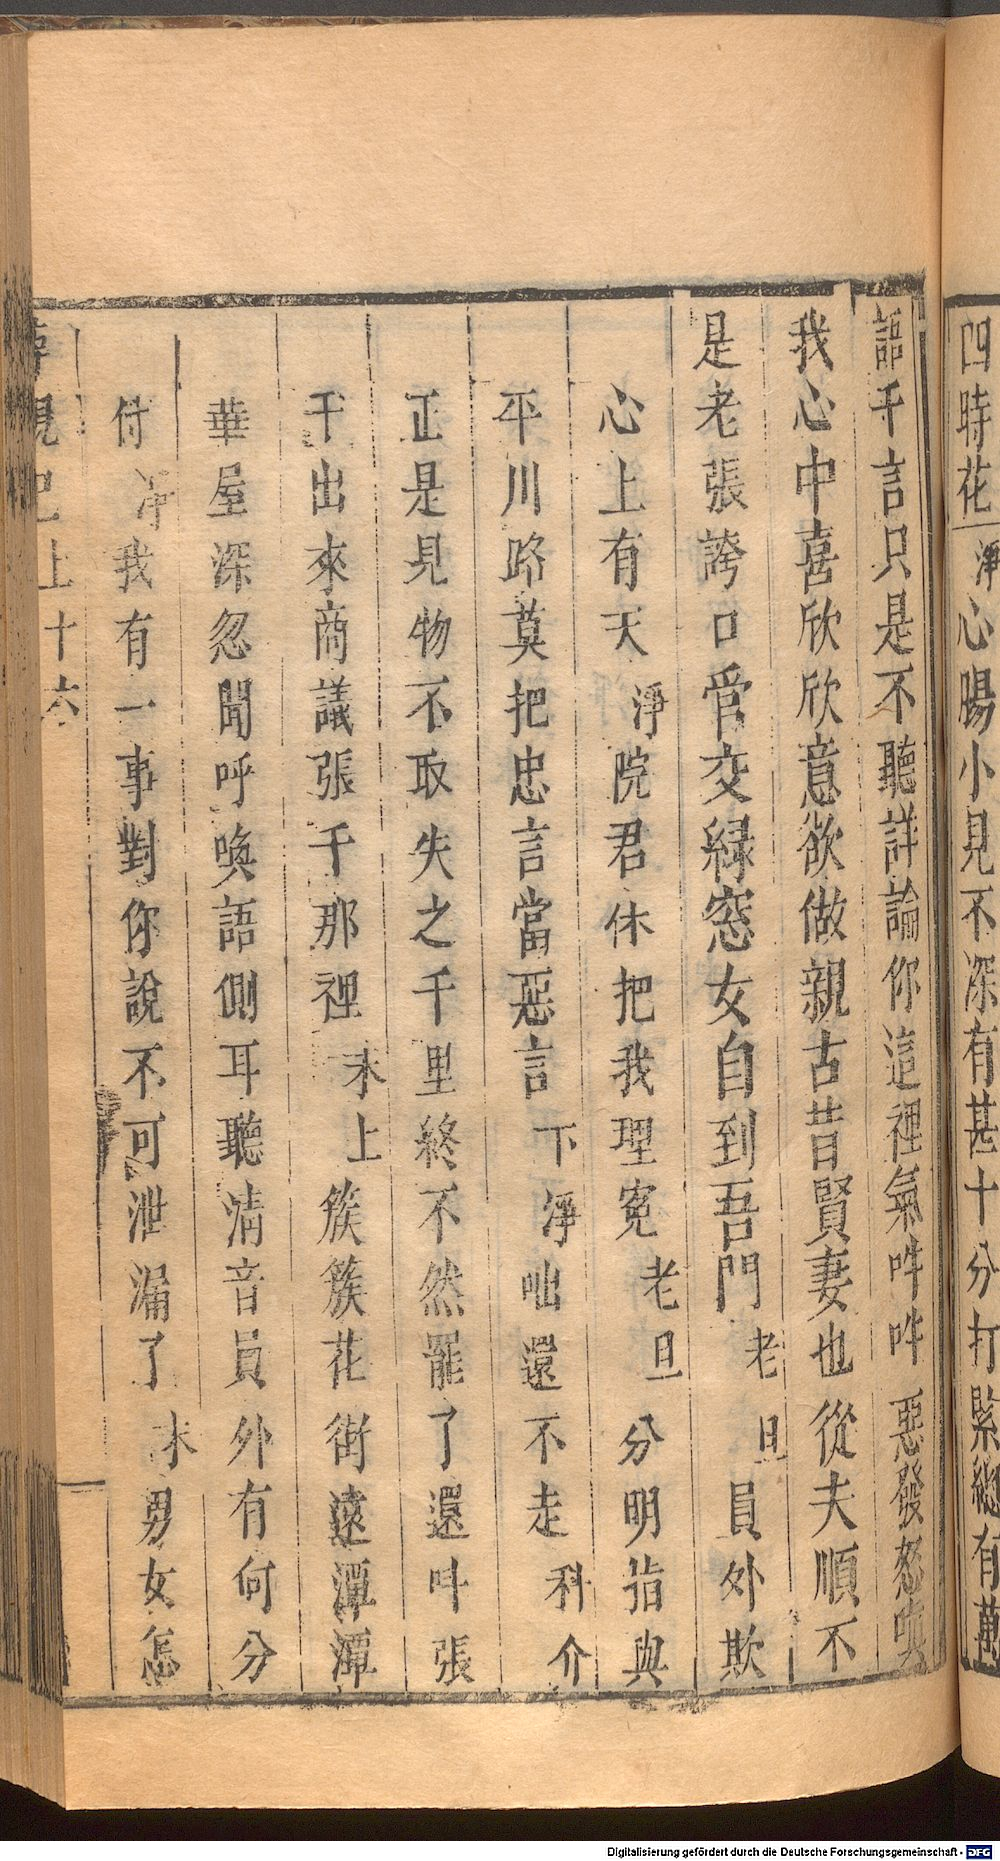 四時花淨心腸小見不深有甚十分打緊總有萬
語千言只是不聽詳論你這裡氣吽吽惡發怒嗔
我心中喜欣欣意欲做親古昔賢妻也從夫順不
是老張誇口管交綠窓女自到吾門老旦員外欺
心上有天淨院君休把我理寃老旦分明指與
平川路莫把忠言當惡言下淨咄還不走科介
正是見物不取失之千里終不然罷了還叫張
千出來商議張千那裡末上簇簇花街遠潭潭
華屋深忽聞呼喚語側耳聽清音員外有何分
付淨我有一事對你說不可泄漏了末男女怎
上十六
Digitalisierung gefördert durch die Deutsche Forschungsgemeinschaft - DFG